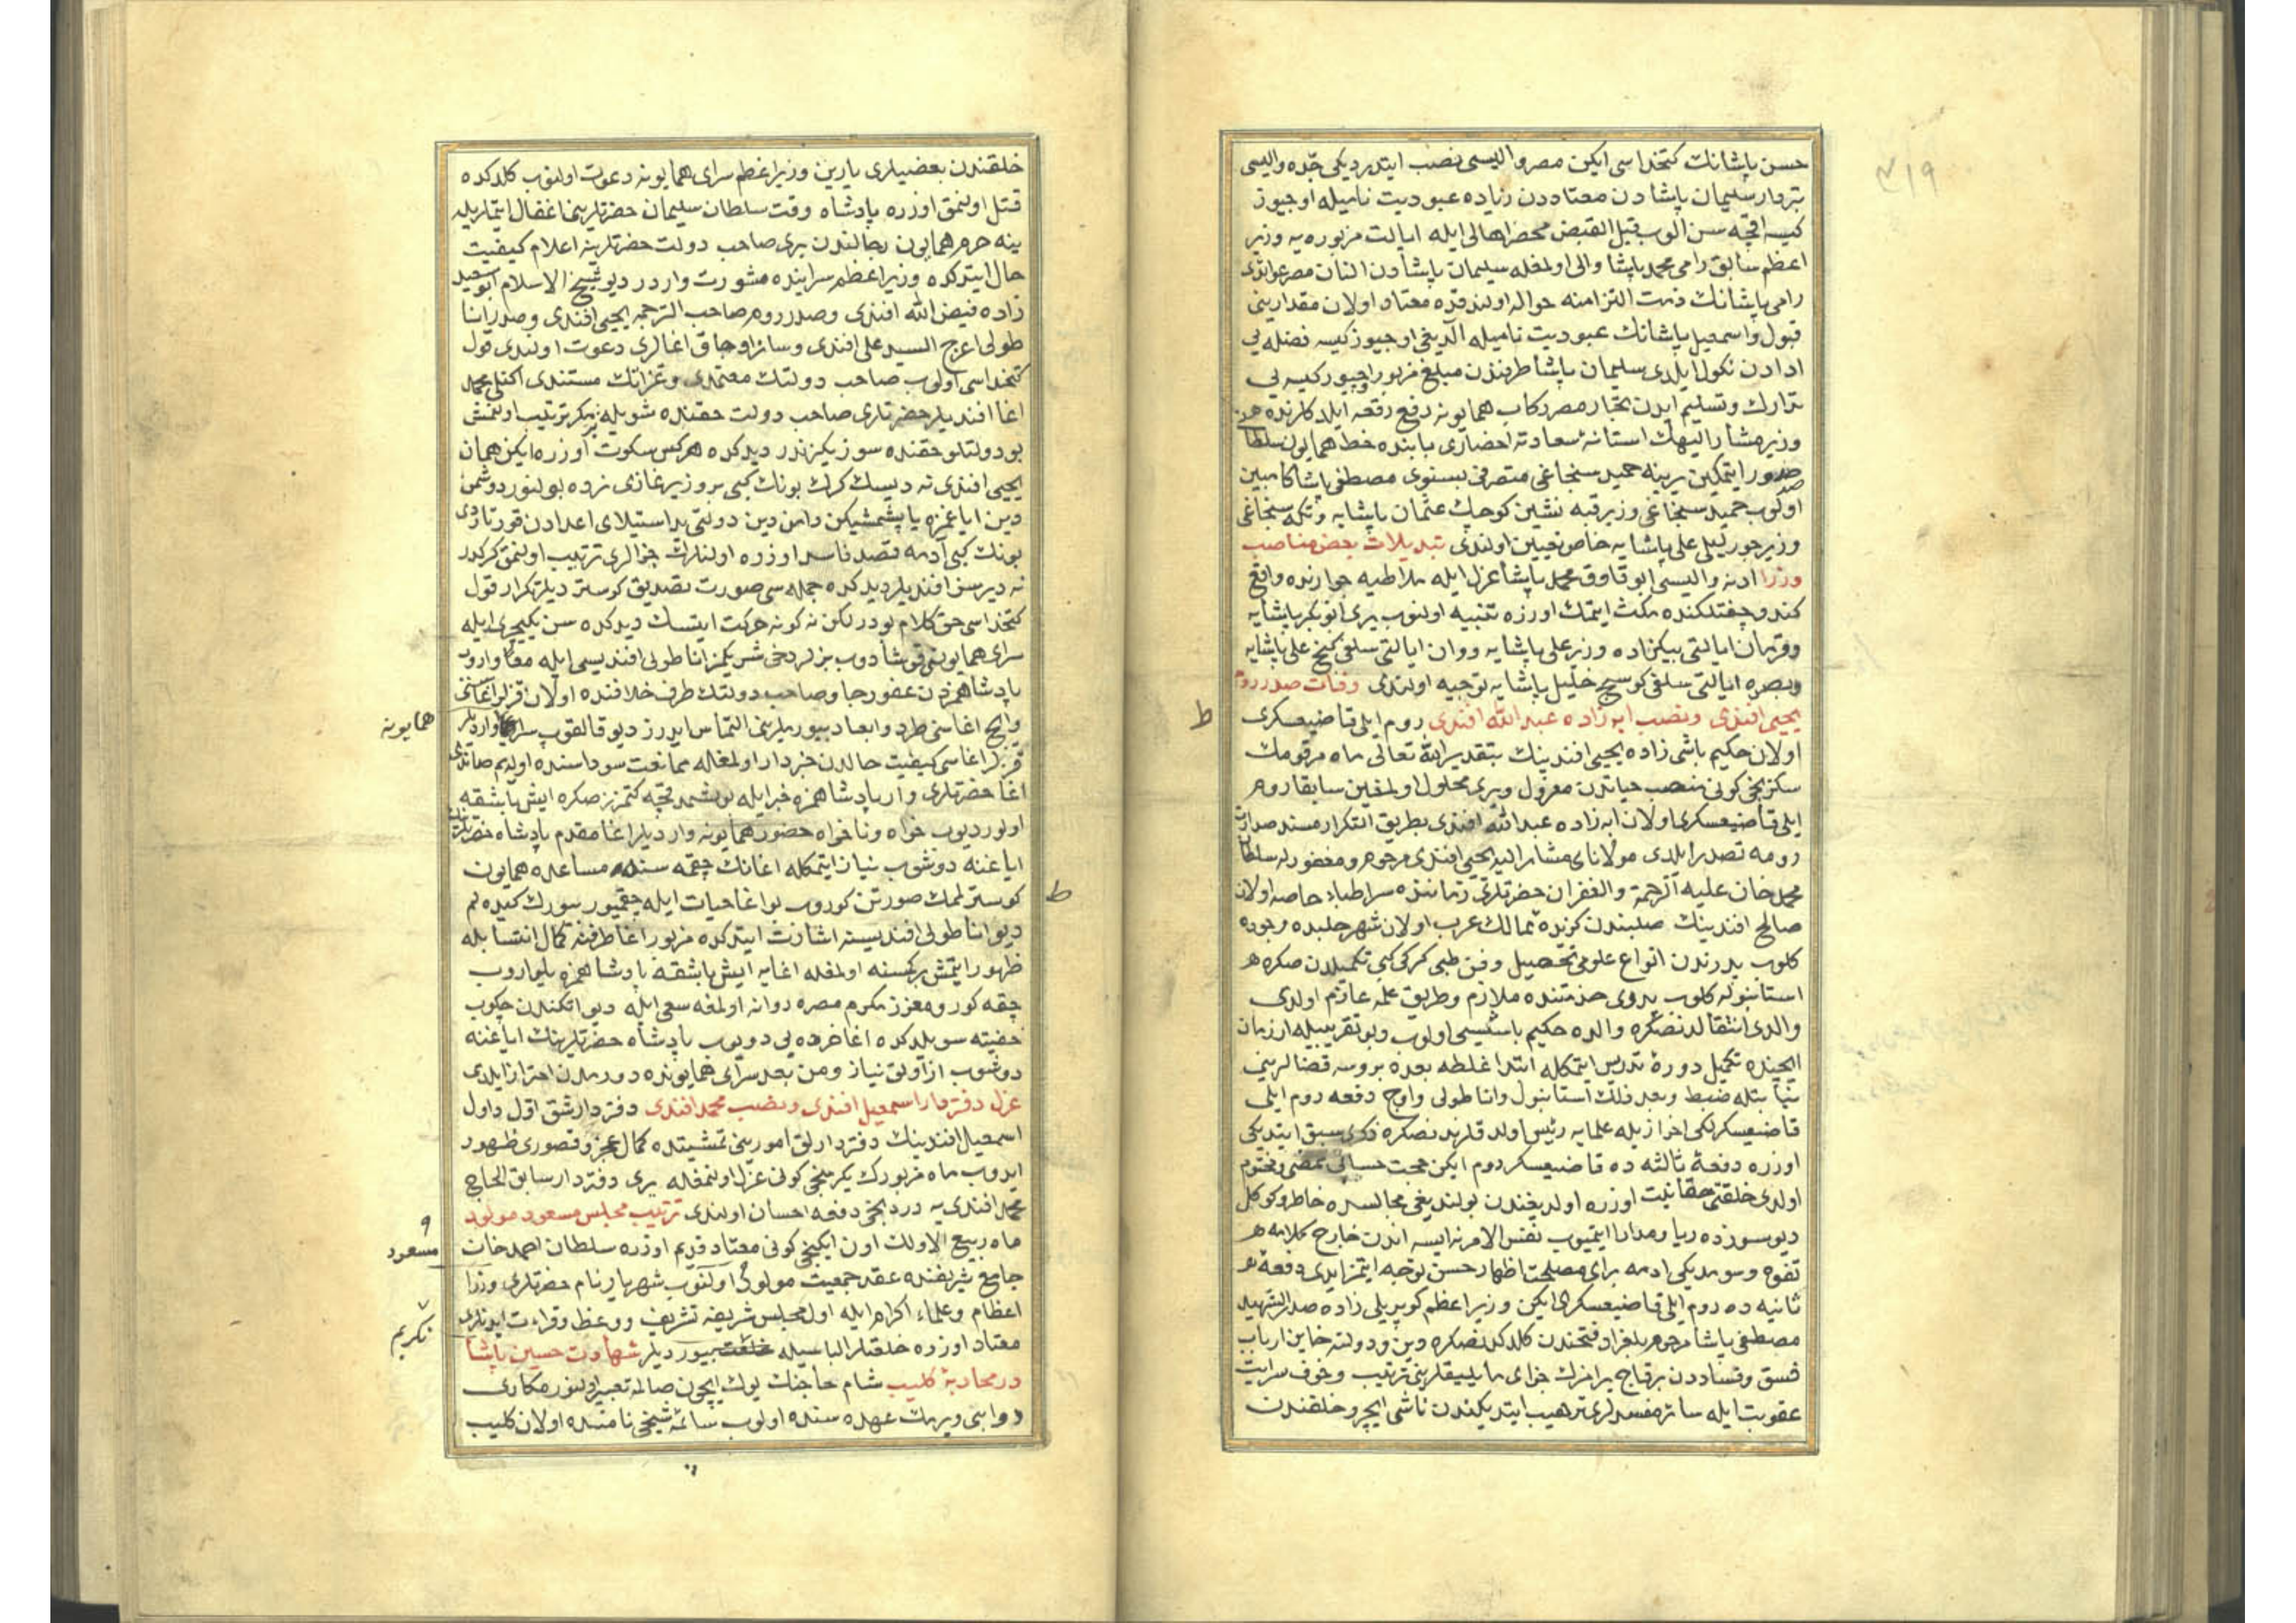 ٣١٩
حسن پاشانك كتخداسى ايكن مصر واليسى نصب ايتدردیکی جده واليسى
بتردار سليمان پاشادن معتاددن زياده عبوديت ناميله اوچيوز
كيسه اقچه سن الوب قبل القبض محضر اهالى ايله ايالت مزبوره يه وزير
اعظم سابق رامى محمد پاشا والى اولمغله سليمان پاشادن النان مصر عوائدى
رامى پاشانك ذمت التزامنه حواله اولندقده معتاد اولان مقدارينى
قبول واسمعيل پاشانك عبوديت ناميله الديغى اوچيوز كيسه فضله يى
ادادن نكول ايلدى سليمان پاشا طرفندن مبلغ مزبور اوچيوز كيسه يى
تدارك وتسليم ايدن تجار مصر ركاب همايونه رفع رقعه ايلدكلرنده
وزير مشار اليهك استانه سعادته احضارى بابنده خط همايون سلطانى
صدور ايتمكين يرينه حميد سنجاغى متصرفى بسنوى مصطفى پاشا
اولوب حميد سنجاغى وزير قبه نشين كوچك عثمان پاشايه وتكه سنجاغى
وزير چورليلى على پاشايه خاص تعيين اولندى تبديلات بعض مناصب
وزرا ادنه واليسى ابو قاوق محمد پاشا عزل ايله ملاطيه جوارنده واقع
كندو چفتلكنده مكث ايتمك اوزره تنبيه اولنوب يرى ابو بكر پاشايه
وقرمان ايالتى بيكزاده وزير على پاشايه ووان ايالتى سلفى كنج على پاشايه
وبصره ايالتى سلفى كوسج خليل پاشايه توجيه اولندى وفات صدر روم
يحيى افندى ونصب ابه زاده عبد الله افندى روم ايلى قاضيعسكرى
اولان حكيم باشى زاده يحيى افندينك بتقدير الله تعالى ماه مرقومك
سكزنجى كونى منصب حياتدن معزول ويرى محلول اولمغين سابقا روم
ايلى قاضيعسكرى اولان ابه زاده عبد الله افندى بطريق التكرار مسند صدارت
رومه تصدر ايلدى مولاناى مشار اليه يحيى افندى مرحوم ومغفور له سلطان
محمد خان عليه الرحمة والغفران حضرتلرى زماننده سر اطباء خاصه اولان
صالح افندينك صلبندن كزيده ممالك عرب اولان شهر حلبده وجوده
كلوب پدرندن انواع علومى تحصيل وفن طبى كركى كبى تكميلدن صكره
استانبوله كلوب پدرى خدمتنده ملازم وطريق علمه عازم اولدى
والدى انتقالندنصكره والده حكيم باشيسى اولوب وبو تقريبيله ارزمان
ايچنده تكميل دوره تدريس ايتمكله ابتدا غلطه بعده بروسه قضالرينى
ضبط وبعد ذلك استانبول واناطولى واوچ دفعه روم ايلى
قاضيعسكرلكى احراز ايله علمايه رئيس اولدقلرندنصكره ذكرى سبق ايتديكى
اوزره دفعه ثالثه ده قاضيعسكر روم ايكن حجت حياتى ممضى ومختوم
اولدى خلقتى حقانيت اوزره اولديغندن بولنديغى مجالسده خاطر وكوكل
ديو سوزده ريا ومدارا ايتميوب نفس الامر نه ايسه اندن خارج كلامه
تفوه وسومديكى ادمه براى مصلحت اظهار حسن توجه ايتمز ايدى دفعه
ثانيه ده روم ايلى قاضيعسكرى ايكن وزير اعظم كوپريلى زاده صدر الشهيد
مصطفى پاشا مرحوم بلغراد فتحندن كلدكدنصكره دين ودولته خاين ارباب
فسق وفساددن برقاج برامزك جزاى مايليقلرينى ترتيب وخوف سرايت
عقوبت ايله سائر مفسدلرى ترهيب ايتديكندن ناشى ايچرو خلقندن
ط
خلقندن بعضيلرى يارين وزير اعظم سراى همايونه دعوت اولنوب كلدكده
قتل اولنمق اوزره پادشاه وقت سلطان سليمان حضرتلرينى اغفال ايتملريله
ينه حرم همايون رجالندن برى صاحب دولت حضرتلرينه اعلام كيفيت
حال ايتدكده وزير اعظم سراينده مشورت واردر ديو شيخ الاسلام ابو سعيد
زاده فيض الله افندى وصدر روم صاحب الترجمه يحيى افندى وصدر انا
طولى اعرج السيد على افندى وسائر اوجاق اغالرى دعوت اولندى قول
كتخداسى اولوب صاحب دولتك معتمدى وعزاتك مستندى اكنلى محمد
اغا افنديلر حضرتلرى صاحب دولت حقنده شويله بر مكر ترتيب اولنمش
بو دولتلو حقنده سوزيكز ندر ديدكده هركس سكوت اوزره ايكن همان
يحيى افندى نه ديسك كرك بونك كبى بر وزير غازى نرده بولنور دوشمن
دين اياغمزه ياپشمشيكن دامن دين دولتى يد استيلاى اعدادن قورتاردى
بونك كبى آدمه قصد فاسد اوزره اولنلرك جزالرى ترتيب اولنمق كركدر
نه ديرسز افنديلر ديدكده جمله سى صورت تصديق كوسترديلر تكرار قول
كتخداسى حق كلام بودر لكن نه كونه حركت ايتسك ديدكده سن يكيچرى ايله
سراى همايونى قوشادوب بزلر دخى شريكمز اناطولى افنديسى ايله معا واروب
پادشاهمزدن عفو رجا وصاحب دولتك طرف خلافنده اولان قزلر اغاسنى
وايچ اغاسنى طرد وابعاد بيورملرينى التماس ايدرز ديو قالقوب سراى وارديلر
همايونه
قزلر اغاسى كيفيت حالدن خبردار اولمغله ممانعت سوداسنده اولدم صاندى
اغا حضرتلرى وار پادشاهمزه خبر ايله بوشمدنقچه كتمزز صكره ايش باشقه
اولور ديوب خواه ونا خواه حضور همايونه وارديلر اغا مقدم پادشاه حضرتلرينك
اياغنه دوشوب نياز ايتمكله اغانك چقمه سنده مساعده همايون
كوسترلمك صورتن كوروب بو اغا حيات ايله چقميور بيورك كيده لم
ديو اناطولى افنديسنه اشارت ايتدكده مزبور اغا طرفنه كمال انتسابله
ظهور ايتمش بر كمسنه اولمغله اغايه ايش باشقه پادشاهمزه يلواروب
چقه كور ومعزز مكرم مصره روانه اولمغه سعى ايله ديو اتكندن چكوب
خفيته سويلدكده اغا خرده يى دويوب پادشاه حضرتلرينك اياغنه
دوشوب ازاولق نياز ومن بعد سراى همايونده دورمدن احتراز ايلدى
عزل دفتردار اسمعيل افندى ونصب محمد افندى دفتردار شق اول داول
اسمعيل افندينك دفتردارلق امورينى تمشيتده كمال عجز وقصورى ظهور
ايدوب ماه مزبورك يكرمنجى كونى عزل اولنمغله يرى دفتردار سابق الحاج
محمد افندى يه دردنجى دفعه احسان اولندى ترتيب مجلس مسعود مولود
ماه ربيع الاولك اون ايكنجى كونى معتاد قديم اوزره سلطان احمد خان
مسعود
جامع شريفنده عقد جمعيت مولود اولنوب شهريار بنام حضرتلرى وزرا
اعظام وعلماء اكرام ايله اول مجلس شريفه تشريف ووعظ وقراءت ايدنلرى
تكريم
معتاد اوزره خلعتلر الباسيله بيورديلر شهادت حسين پاشا
در محاربه كليب شام حاجنك يوك ايچون صالمه تعبير اولنور مكارى
دوابنى ويرمك عهده سنده اولوب سالمه شيخى نامنده اولان كليب
ط